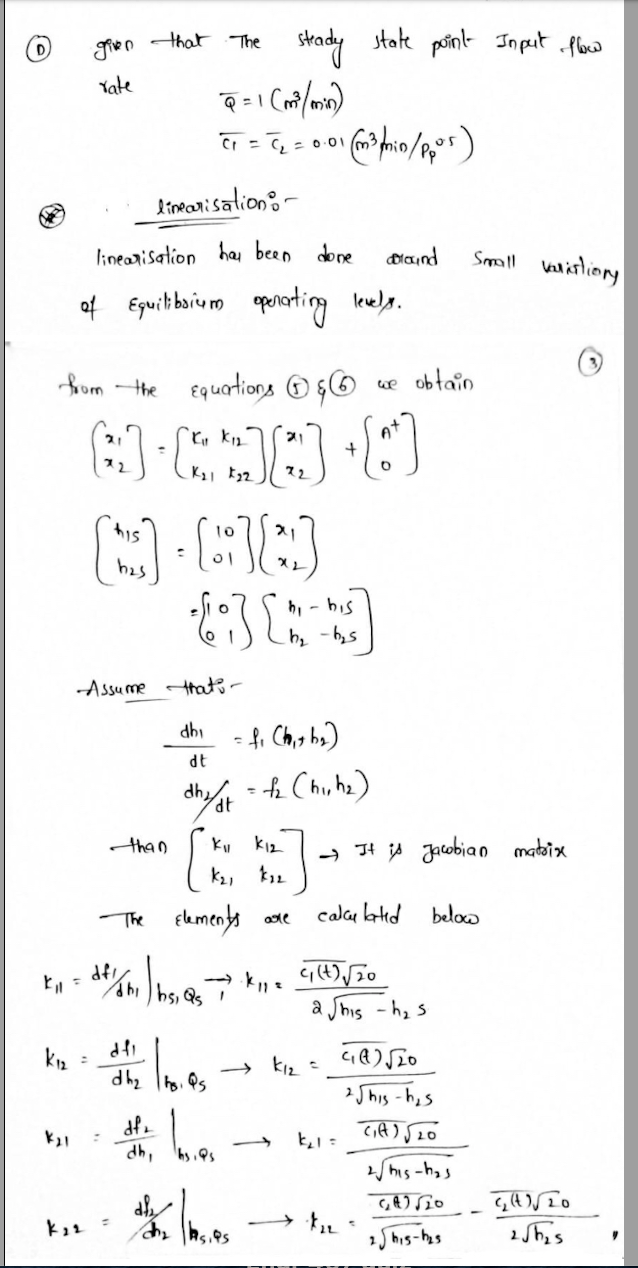 ① given that The steady state point Input flow
rate
Q̅ = 1 (m³/min)
C̅1 = C̅2 = 0.01 (m³/min/Pp^0.5)
linearisation:-
linearisation has been done around small variations
of Equilibrium operating levels.
③
from the equations ⑤ & ⑥ we obtain
[x1 x2] = [K11 K12 K21 K22] [x1 x2] + [A+ 0]
[h1s h2s] = [1 0 0 1] [x1 x2]
= [1 0 0 1] [h1 - h1s h2 - h2s]
Assume that:-
dh1/dt = f1 (h1, h2)
dh2/dt = f2 (h1, h2)
than [K11 K12 K21 K22] → It is Jacobian matrix
The Elements are calculated below
K11 = df1/dh1 |hs, Qs → K11 = C1(t)√20 / 2√h1s - h2s
K12 = df1/dh2 |hs, Qs → K12 = C1(t)√20 / 2√h1s - h2s
K21 = df2/dh1 |hs, Qs → K21 = C1(t)√20 / 2√h1s - h2s
K22 = df2/dh2 |hs, Qs → K22 = C2(t)√20 / 2√h1s - h2s - C2(t)√20 / 2√h2s ,